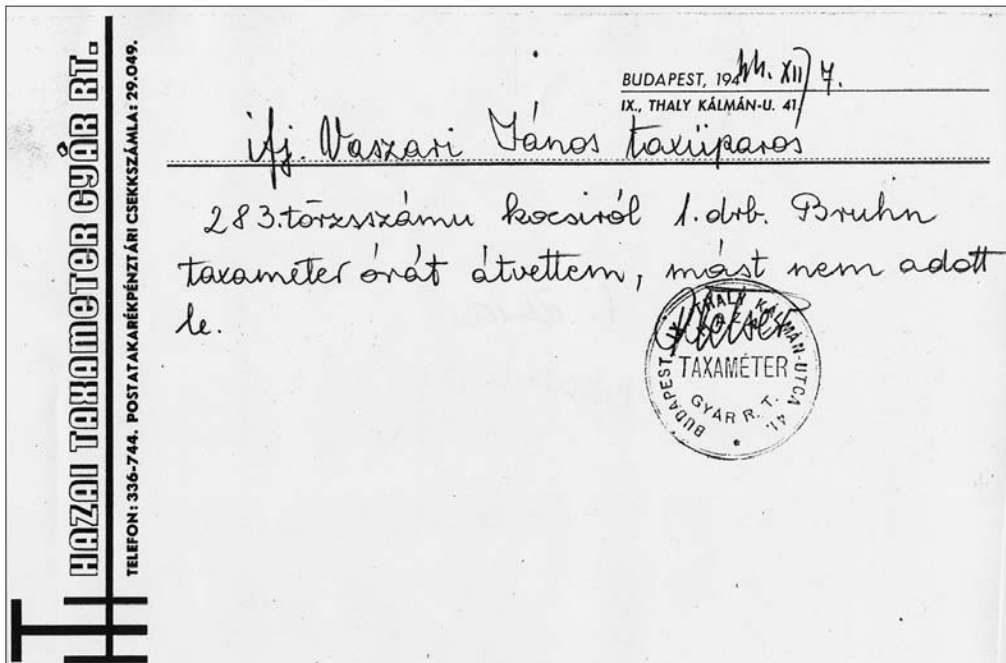 HAZAI TAXAMETER GYÁR RT.
TELEFON: 336-744. POSTATAKARÉKPÉNZTÁRI CSEKKSZÁMLA: 29.049.
BUDAPEST, 1944. XII 7.
IX., THALY KÁLMÁN-U. 41.
ifj. Vaszari János taxiiparos
283. törzsszámu kocsiról 1. drb. Bruhn
taxaméter órát átvettem, mást nem adott
le.
BUDAPEST, IX. THALY KÁLMÁN-UTCA 41.
TAXAMÉTER
GYÁR R. T.